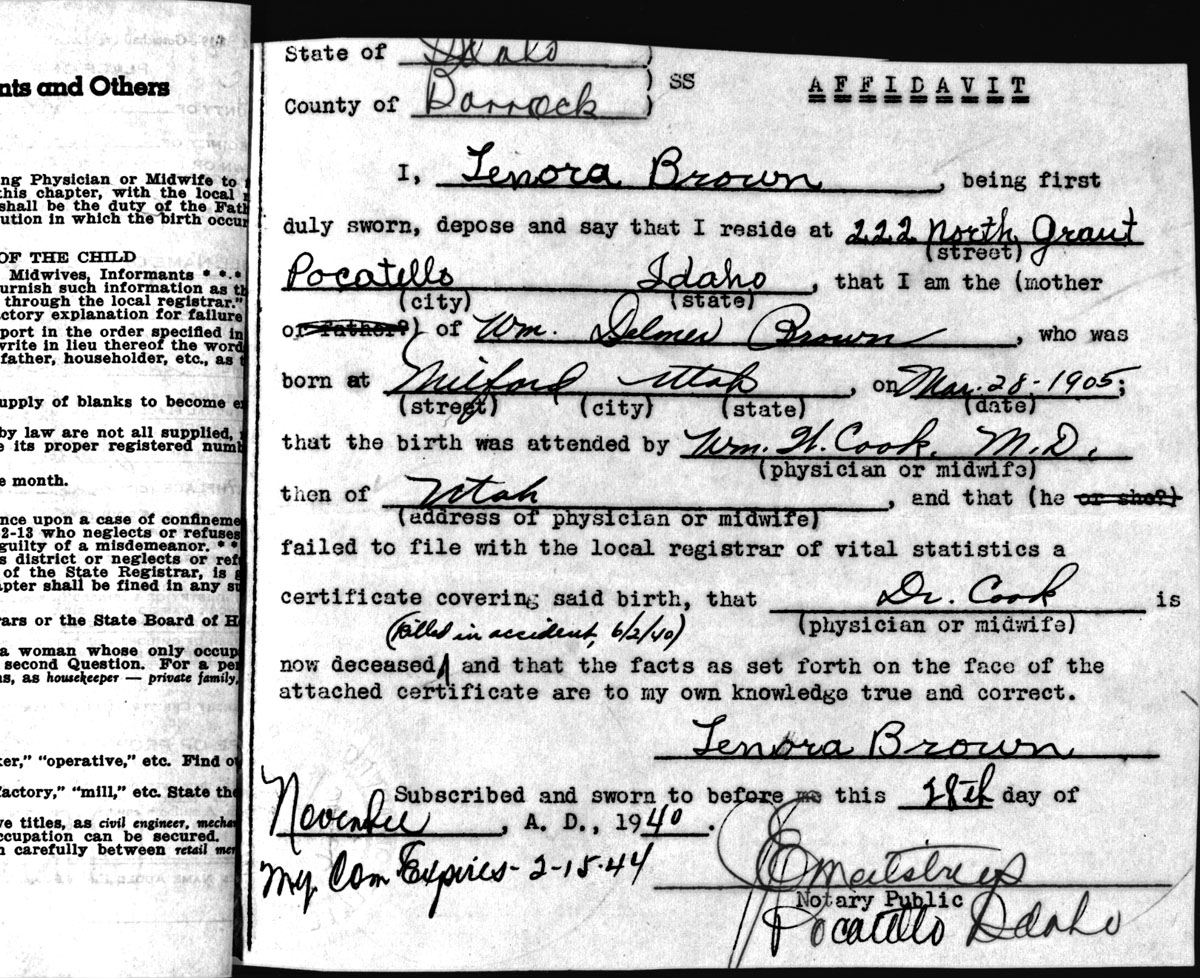 nts and Others
ng Physician or Midwife to
this chapter, with the local
shall be the duty of the Fath
ution in which the birth occur
OF THE CHILD
Midwives, Informants * * . *
urnish such information as th
through the local registrar."
ctory explanation for failure
port in the order specified in
write in lieu thereof the word
father, householder, etc., as t
upply of blanks to become e
by law are not all supplied,
e its proper registered numb
e month.
nce upon a case of confineme
2-13 who neglects or refuses
guilty of a misdemeanor. * *
s district or neglects or ref
of the State Registrar, is
apter shall be fined in any su
ars or the State Board of H
a woman whose only occup
second Question. For a per
as, as housekeeper — private family,
ker," "operative," etc. Find ou
factory," "mill," etc. State the
ve titles, as civil engineer, mechan
ccupation can be secured.
n carefully between retail mer
State of Idaho )
) SS AFFIDAVIT
County of Bannock )
I, Lenora Brown, being first
duly sworn, depose and say that I reside at 222 North Grant
(street)
Pocatello Idaho, that I am the (mother
(city) (state)
or father?) of Wm. Delmer Brown, who was
born at Milford Utah, on Mar. 28-1905;
(street) (city) (state) (date)
that the birth was attended by Wm. H. Cook. M.D.
(physician or midwife)
then of Utah, and that (he or she?)
(address of physician or midwife)
failed to file with the local registrar of vital statistics a
certificate covering said birth, that Dr. Cook is
(Killed in accident, 6/2/40) (physician or midwife)
now deceased, and that the facts as set forth on the face of the
attached certificate are to my own knowledge true and correct.
Lenora Brown
Subscribed and sworn to before me this 28th day of
November, A. D., 1940.
My Com Expires- 2-15-44
Notary Public
Pocatello Idaho